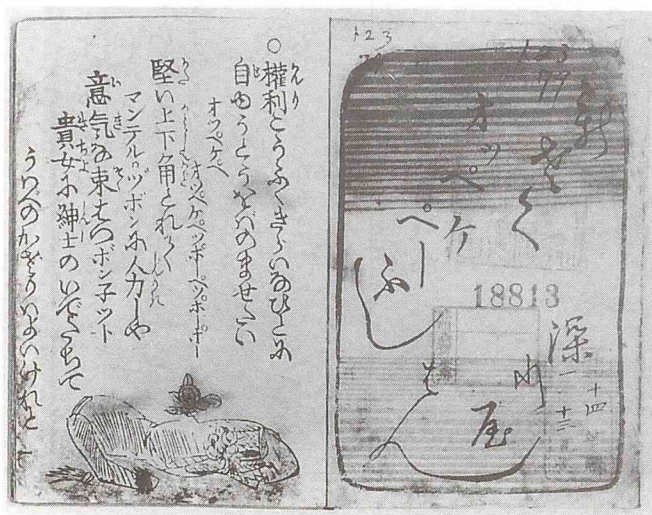 123
77
新さく
オッペ
ケ
ペー
ぶし
18813
深
屋
はん
○權利こうふくきらいなひとに
自由うとうをバのませたい
オッペケペ
オッペケペッポーペッポーポー
堅い上下角とれて
マンテルヅボンに人力しや
意気な束はつボン子ット
貴女に紳士のいでたちで
うわべのかざりハよいけれど